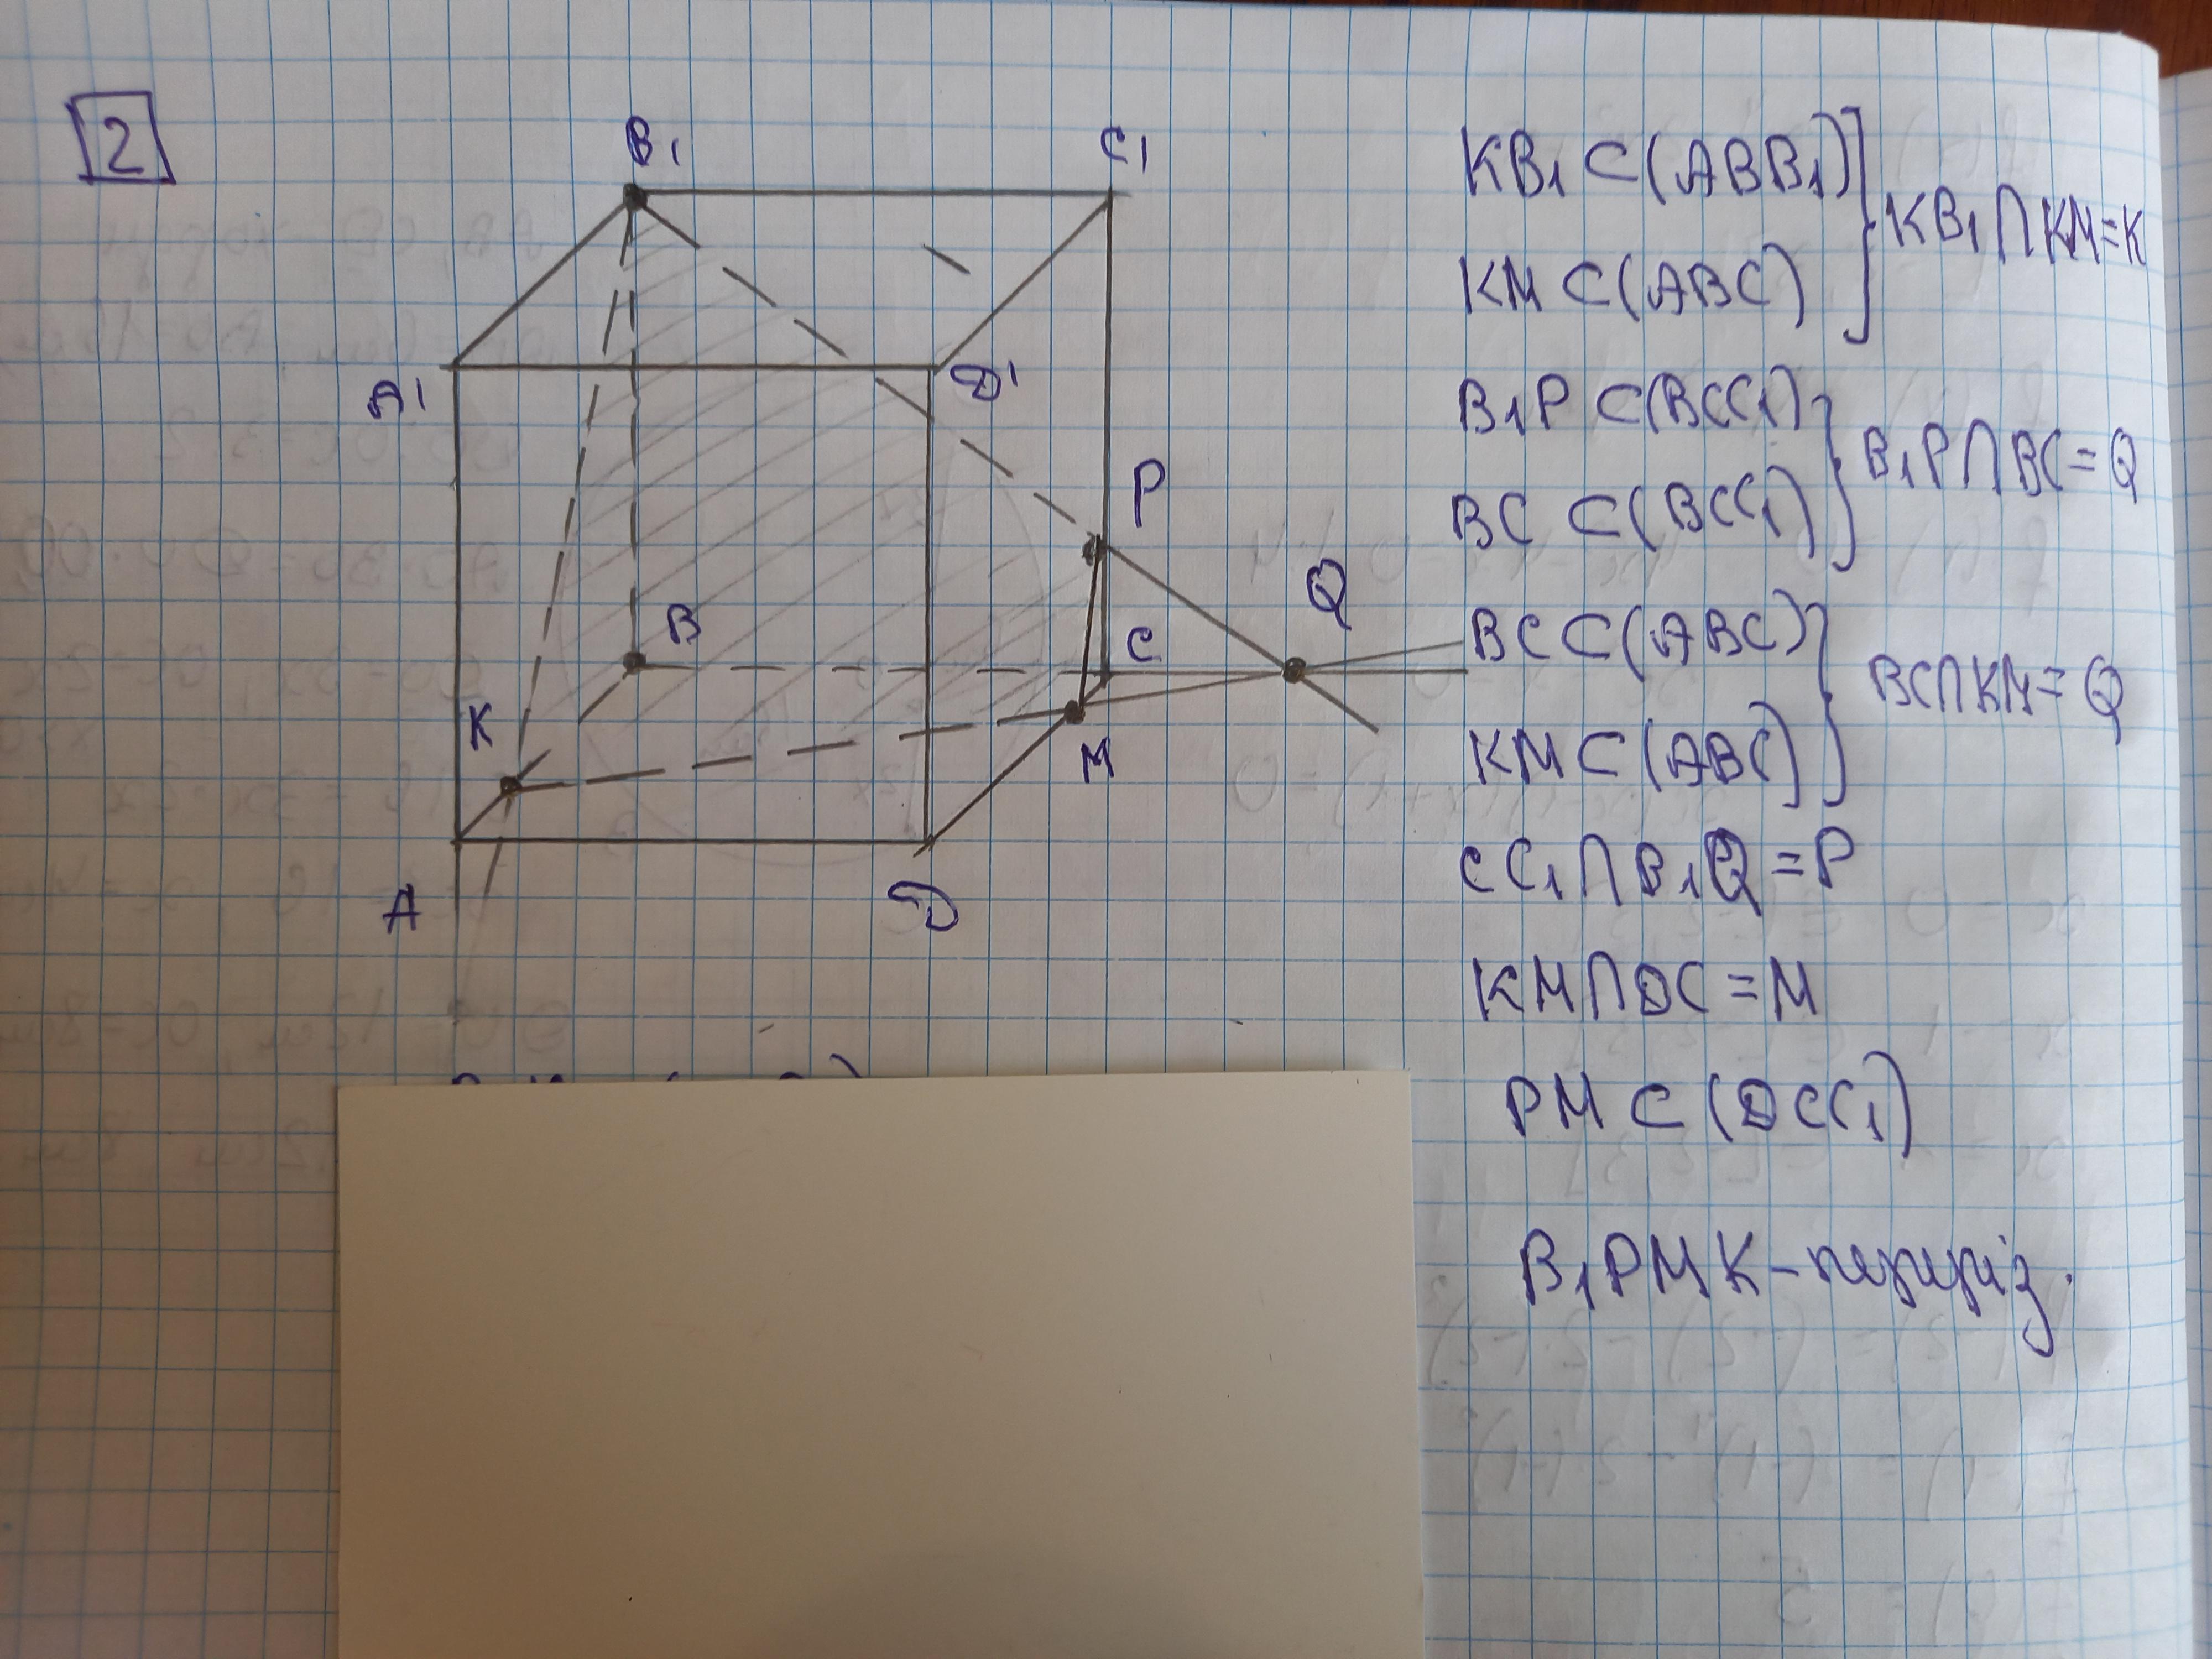 2
B1
C1
A1
D1
P
Q
B
C
K
M
A
D
KB1 ⊂ (ABB1)
KM ⊂ (ABC)
KB1 ∩ KM = K
B1P ⊂ (BCC1)
BC ⊂ (BCC1)
B1P ∩ BC = Q
BC ⊂ (ABC)
KM ⊂ (ABC)
BC ∩ KM = Q
CC1 ∩ B1Q = P
KM ∩ DC = M
PM ⊂ (DCC1)
B1PMK - переріз.